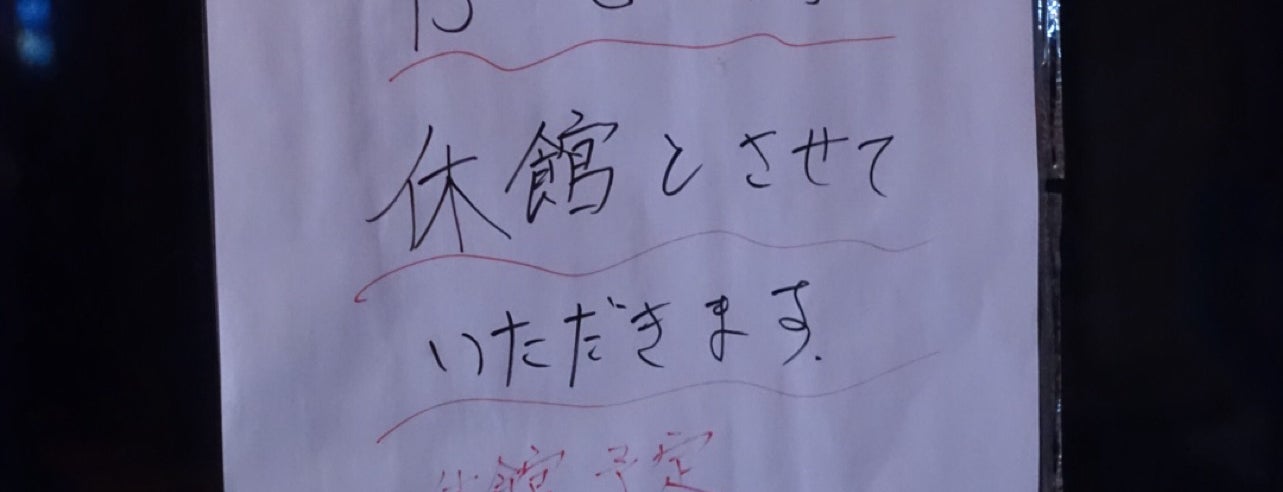 休館とさせて
いただきます.
休館予定